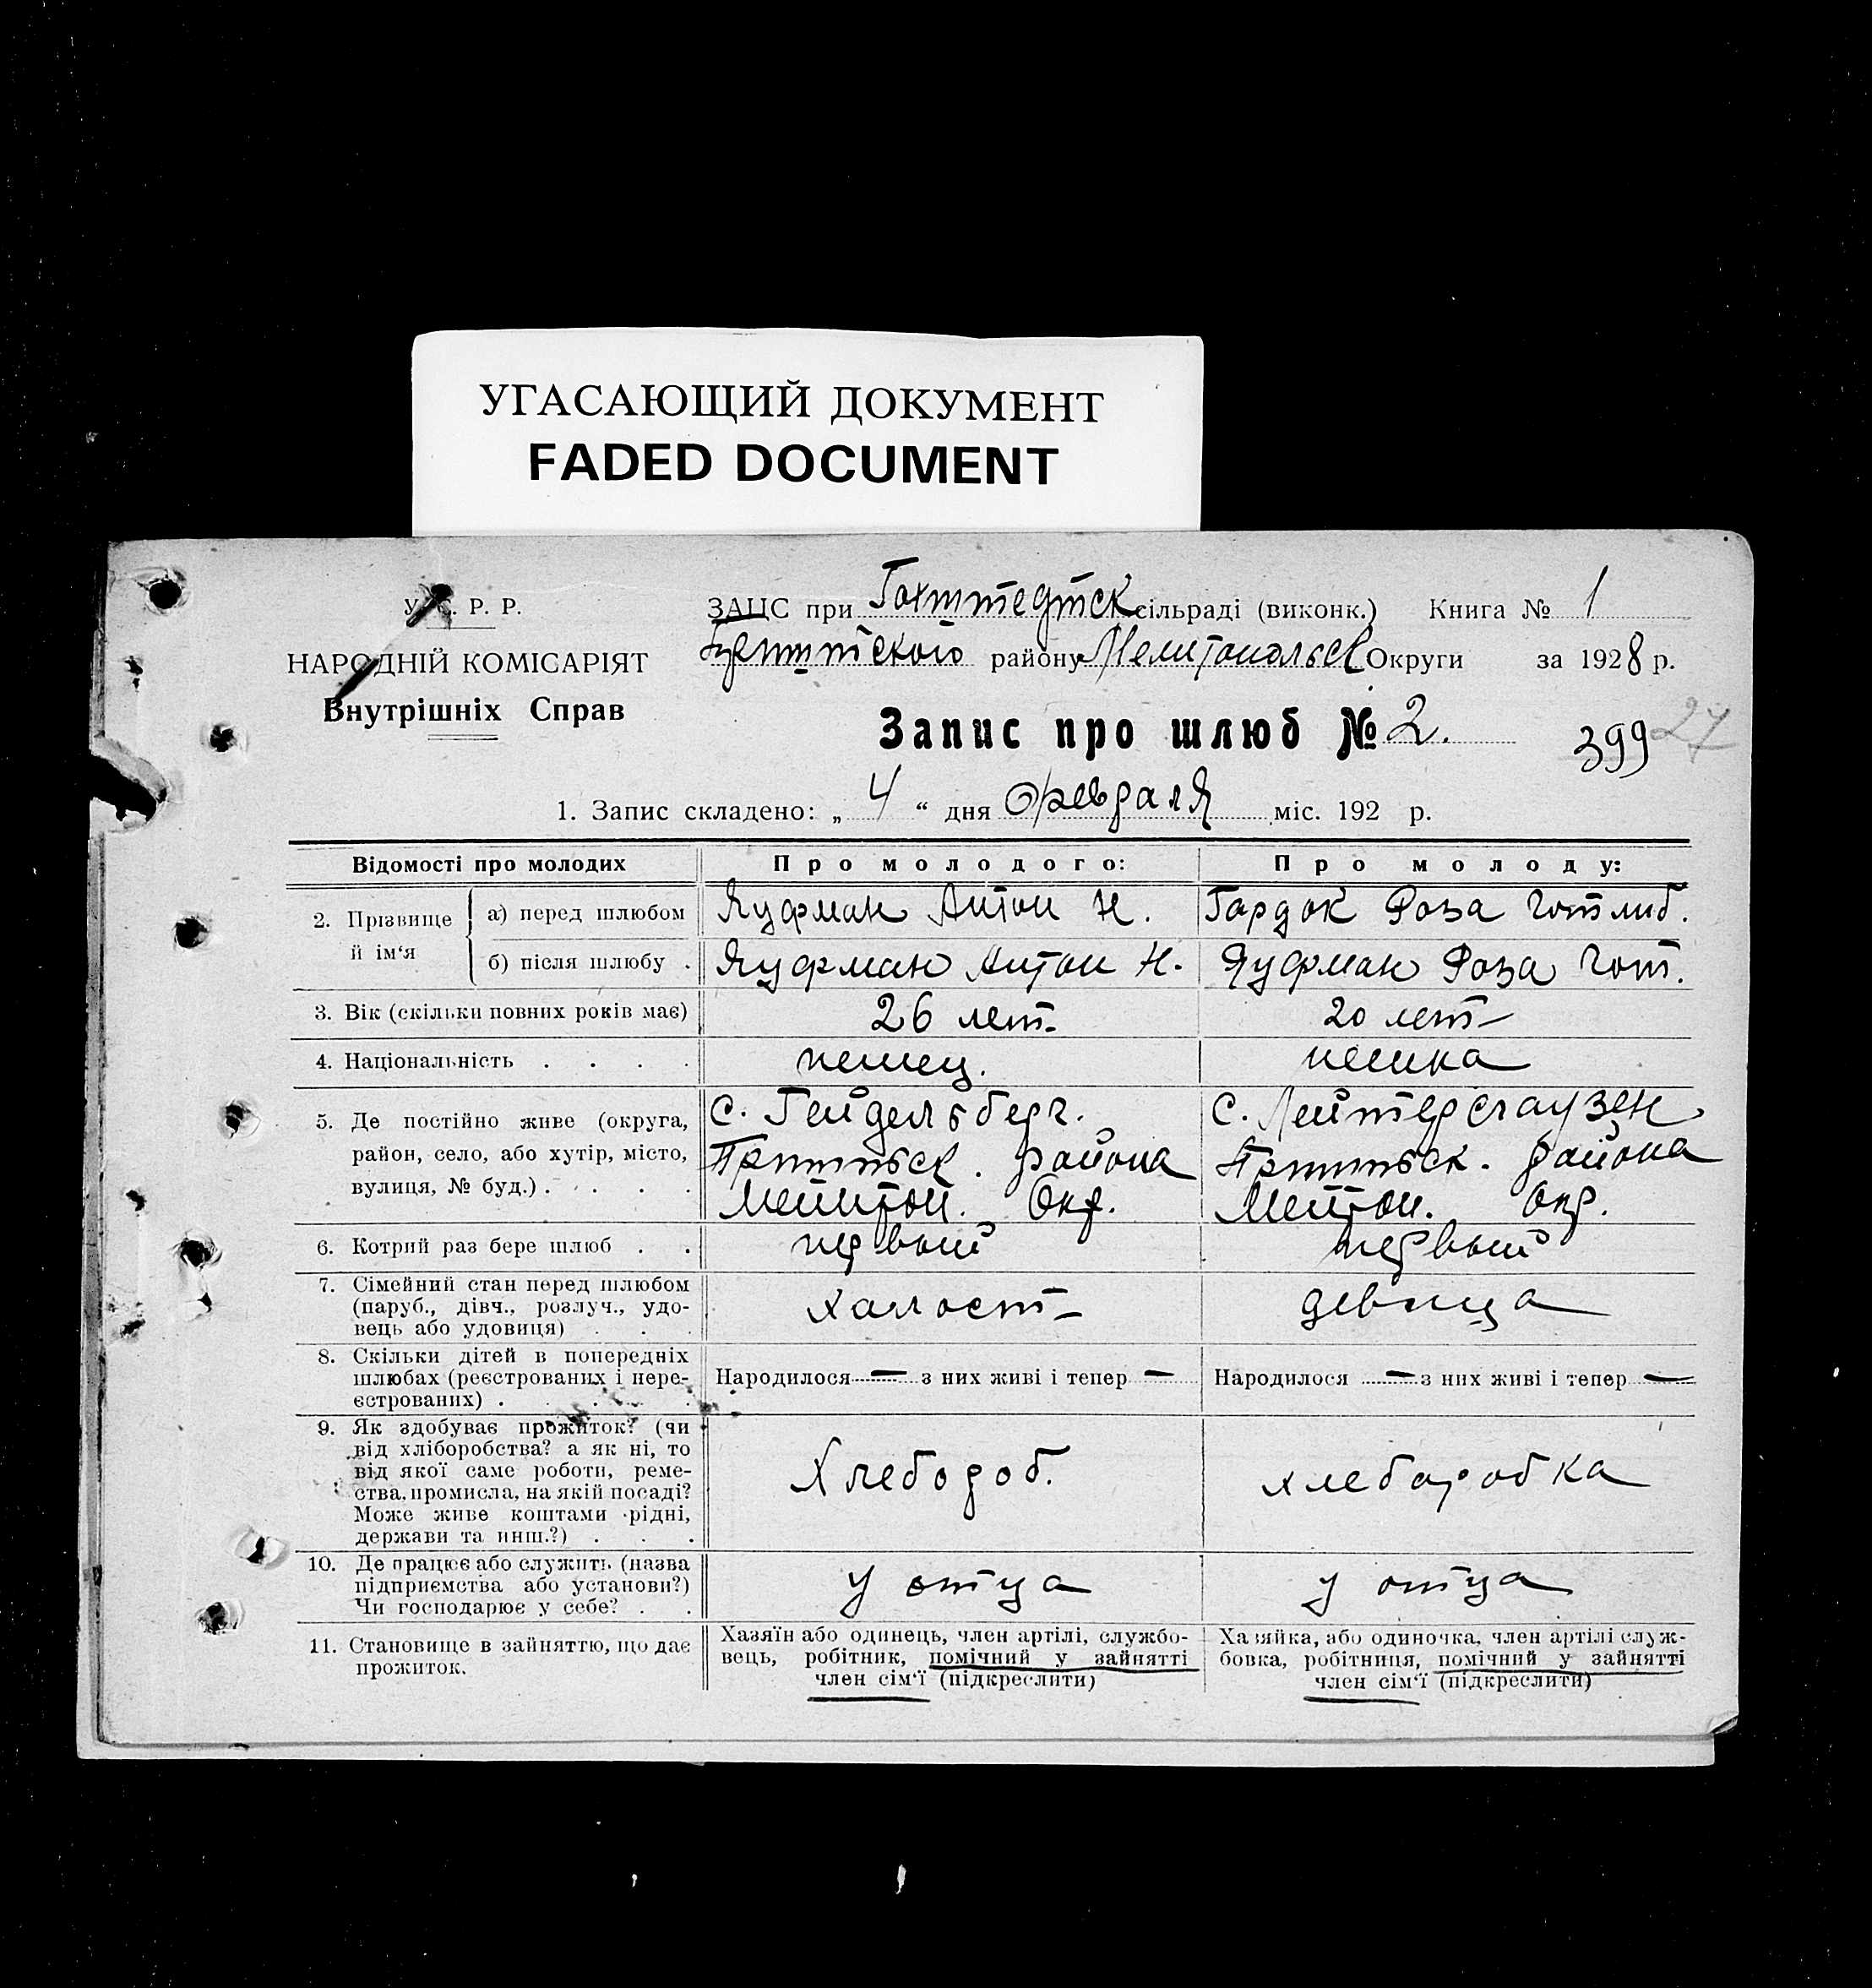 УГАСАЮЩИЙ ДОКУМЕНТ
FADED DOCUMENT
У. С. Р. Р.
НАРОДНІЙ КОМІСАРІЯТ
Внутрішніх Справ
ЗАЦС при Гохштедтск сільраді (виконк.) Книга № 1
району Мелитопольск Округи за 1928 р.
Запис про шлюб № 2.
399 27
1. Запис складено: „ 4 “ дня Февраля міс. 192 р.
Відомості про молодих Про молодого: Про молоду:
2. Прізвище й ім‘я
а) перед шлюбом Яуфман Антон Н. Гардок Роза Готлиб.
б) після шлюбу . Яуфман Антон Н. Яуфман Роза Гот.
3. Вік (скільки повних років має) 26 лет 20 лет
4. Національність . . . . немец. немка
5. Де постійно живе (округа, район, село, або хутір, місто, вулиця, № буд.) . . . .
с. Гейдельберг. с. Лейтерсгаузен
района района
Мелитоп. Окр. Мелитоп. Окр.
6. Котрий раз бере шлюб . . первый первый
7. Сімейний стан перед шлюбом
(паруб., дівч., розлуч., удо-
вець або удовиця) . . .
халост девица
8. Скільки дітей в попередніх
шлюбах (реєстрованих і нере-
єстрованих) . . . . .
Народилося — з них живі і тепер — Народилося — з них живі і тепер —
9. Як здобуває прожиток? (чи
від хліборобства? а як ні, то
від якої саме роботи, реме-
ства, промисла, на якій посаді?
Може живе коштами рідні,
держави та инш.?) . . .
Хлебороб. хлебаробка
10. Де працює або служить (назва
підприємства або установи?)
Чи господарює у себе? . .
у отца у отца
11. Становище в зайняттю, що дає
прожиток.
Хазяїн або одинець, член артілі, службо-
вець, робітник, помічний у зайнятті
член сім‘ї (підкреслити)
Хазяйка, або одиночка, член артілі служ-
бовка, робітниця, помічний у зайнятті
член сім‘ї (підкреслити)